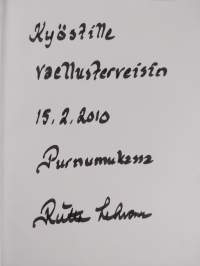 Kyöstille
vaellusterveisin
15.2.2010
Purnumukassa
Riitta